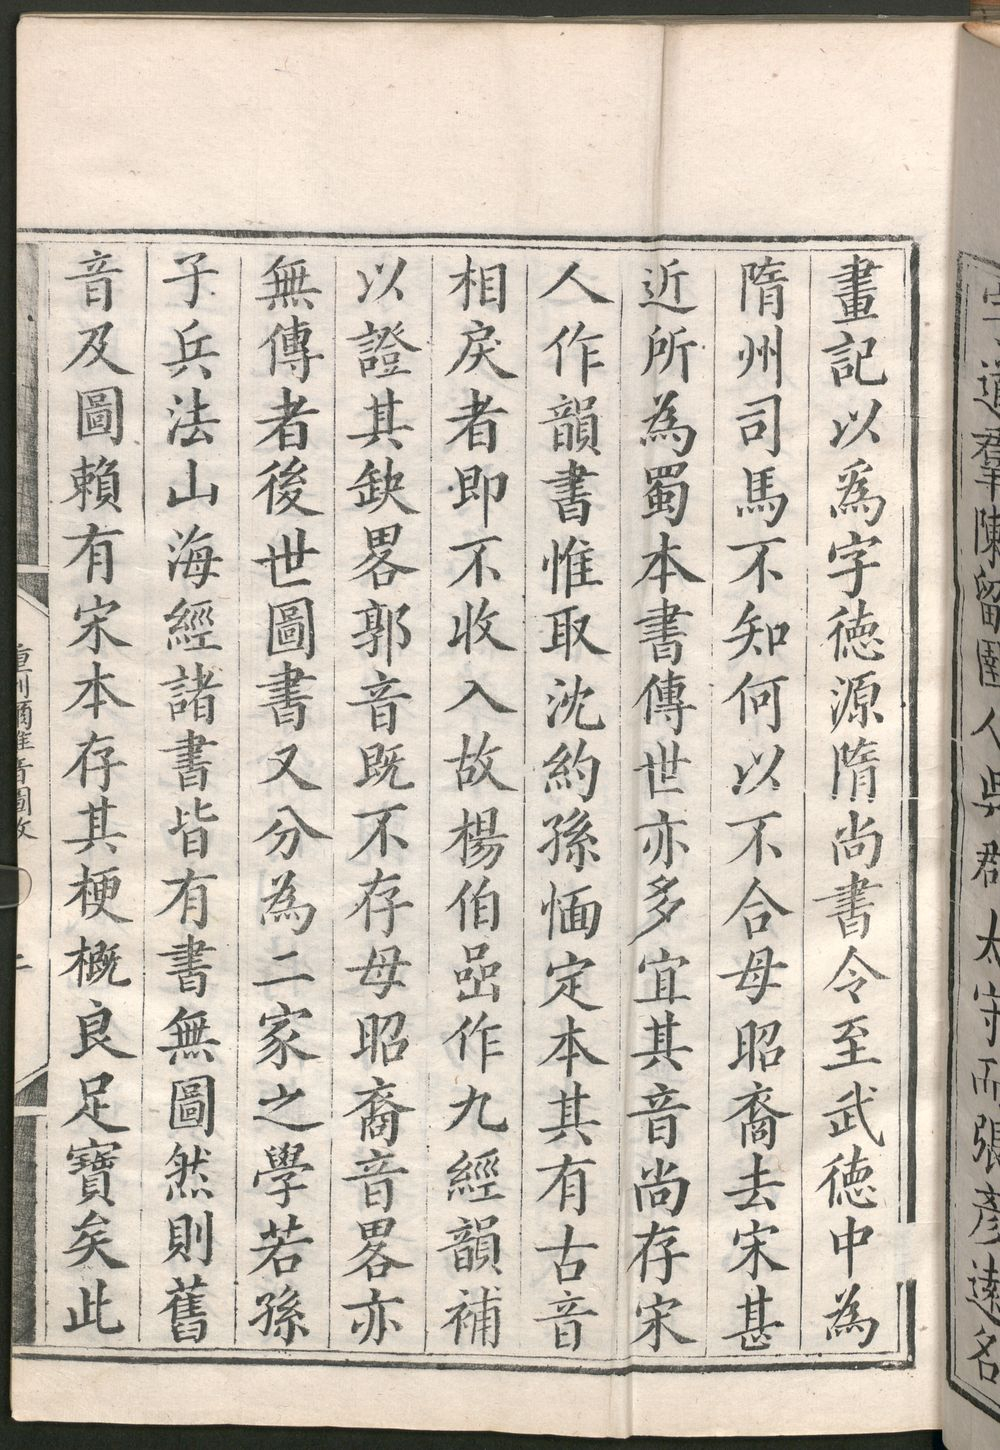 畫記以爲字徳源隋尚書令至武徳中為
隋州司馬不知何以不合母昭裔去宋甚
近所為蜀本書傳世亦多宜其音尚存宋
人作韻書惟取沈約孫愐定本其有古音
相戾者即不收入故楊伯嵒作九經韻補
以證其缺畧郭音既不存母昭裔音畧亦
無傳者後世圖書又分為二家之學若孫
子兵法山海經諸書皆有書無圖然則舊
音及圖賴有宋本存其梗概良足寶矣此
重刊爾雅音圖敘
二